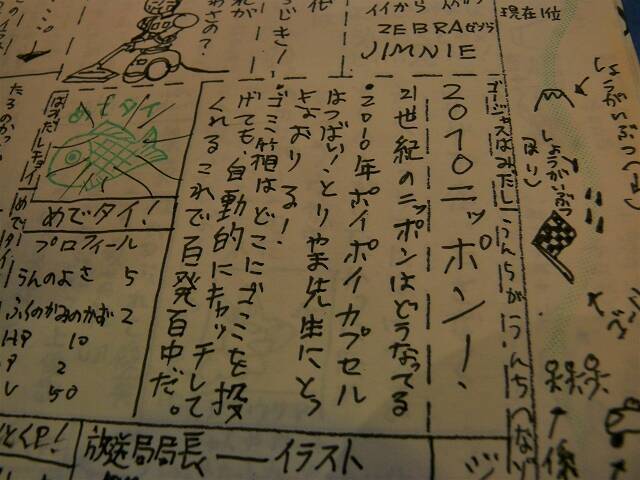 現在1位
しょうがいぶつ(上)
しょうがいぶつ
ほり)
イイから
ZEBRAゼブラ
JIMNIE
ゴージャスはみだし
うんちがうんち
2010ニッポン!
21世紀のニッポンはどうなってる
・2010年ポイポイカプセル
はつばい!とりやま先生にとっ
ゴミ箱はどこにゴミを投
げても、自動的にキャッチして
くれるこれで百発百中だ。
めでタイ
はみだしタイ
めでタイ!
プロフィール
うんのよさ 5
ふくのかみのかず 2
HP 10
2
50
放送局局長――イラスト
像